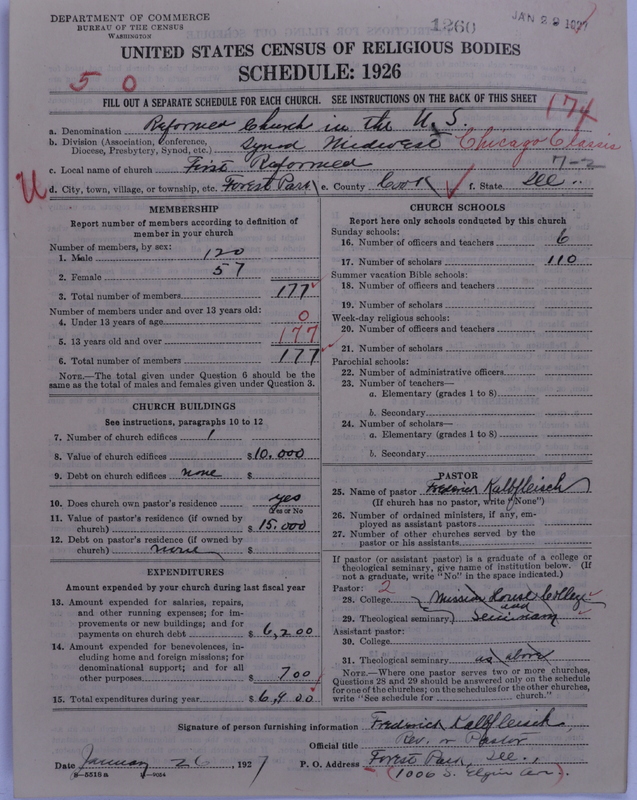 DEPARTMENT OF COMMERCE
BUREAU OF THE CENSUS
WASHINGTON
1260
JAN 29 1927
UNITED STATES CENSUS OF RELIGIOUS BODIES
SCHEDULE: 1926
5 0
FILL OUT A SEPARATE SCHEDULE FOR EACH CHURCH. SEE INSTRUCTIONS ON THE BACK OF THIS SHEET
174
a. Denomination Reformed Church in the U.S.
b. Division (Association, Conference, Diocese, Presbytery, Synod, etc.) Synod Midwest Chicago Classis
c. Local name of church First Reformed 7-2
d. City, town, village, or township, etc. Forest Park e. County Cook f. State Ill.
MEMBERSHIP
Report number of members according to definition of
member in your church
Number of members, by sex:
1. Male 120
2. Female 57
3. Total number of members 177
Number of members under and over 13 years old:
4. Under 13 years of age 0
5. 13 years old and over 177
6. Total number of members 177
NOTE.—The total given under Question 6 should be
the same as the total of males and females given under Question 3.
CHURCH BUILDINGS
See instructions, paragraphs 10 to 12
7. Number of church edifices 1
8. Value of church edifices $10.000
9. Debt on church edifices none $
10. Does church own pastor's residence yes
Yes or No
11. Value of pastor's residence (if owned by
church) $15.000
12. Debt on pastor's residence (if owned by
church) none $
EXPENDITURES
Amount expended by your church during last fiscal year
13. Amount expended for salaries, repairs,
and other running expenses; for im-
provements or new buildings; and for
payments on church debt $6,200
14. Amount expended for benevolences, in-
cluding home and foreign missions; for
denominational support; and for all
other purposes $700
15. Total expenditures during year $6,900
CHURCH SCHOOLS
Report here only schools conducted by this church
Sunday schools:
16. Number of officers and teachers 6
17. Number of scholars 110
Summer vacation Bible schools:
18. Number of officers and teachers
19. Number of scholars
Week-day religious schools:
20. Number of officers and teachers
21. Number of scholars
Parochial schools:
22. Number of administrative officers
23. Number of teachers—
a. Elementary (grades 1 to 8)
b. Secondary
24. Number of scholars—
a. Elementary (grades 1 to 8)
b. Secondary
PASTOR
25. Name of pastor Frederick Kalbfleisch
(If church has no pastor, write "None")
26. Number of ordained ministers, if any, em-
ployed as assistant pastors
27. Number of other churches served by the
pastor or his assistants
If pastor (or assistant pastor) is a graduate of a college or
theological seminary, give name of institution below. (If
not a graduate, write "No" in the space indicated.)
Pastor: 2
28. College Mission House College
and
29. Theological seminary Seminary
Assistant pastor:
30. College
31. Theological seminary as above
NOTE.—Where one pastor serves two or more churches,
Questions 28 and 29 should be answered only on the schedule
for one of the churches; on the schedules for the other churches,
write "See schedule for church."
Signature of person furnishing information Frederick Kalbfleisch,
Official title Rev. or Pastor
Date January 26, 1927 P. O. Address Forest Park, Ill.,
8—5518 a (1006 S. Elgin Av.)